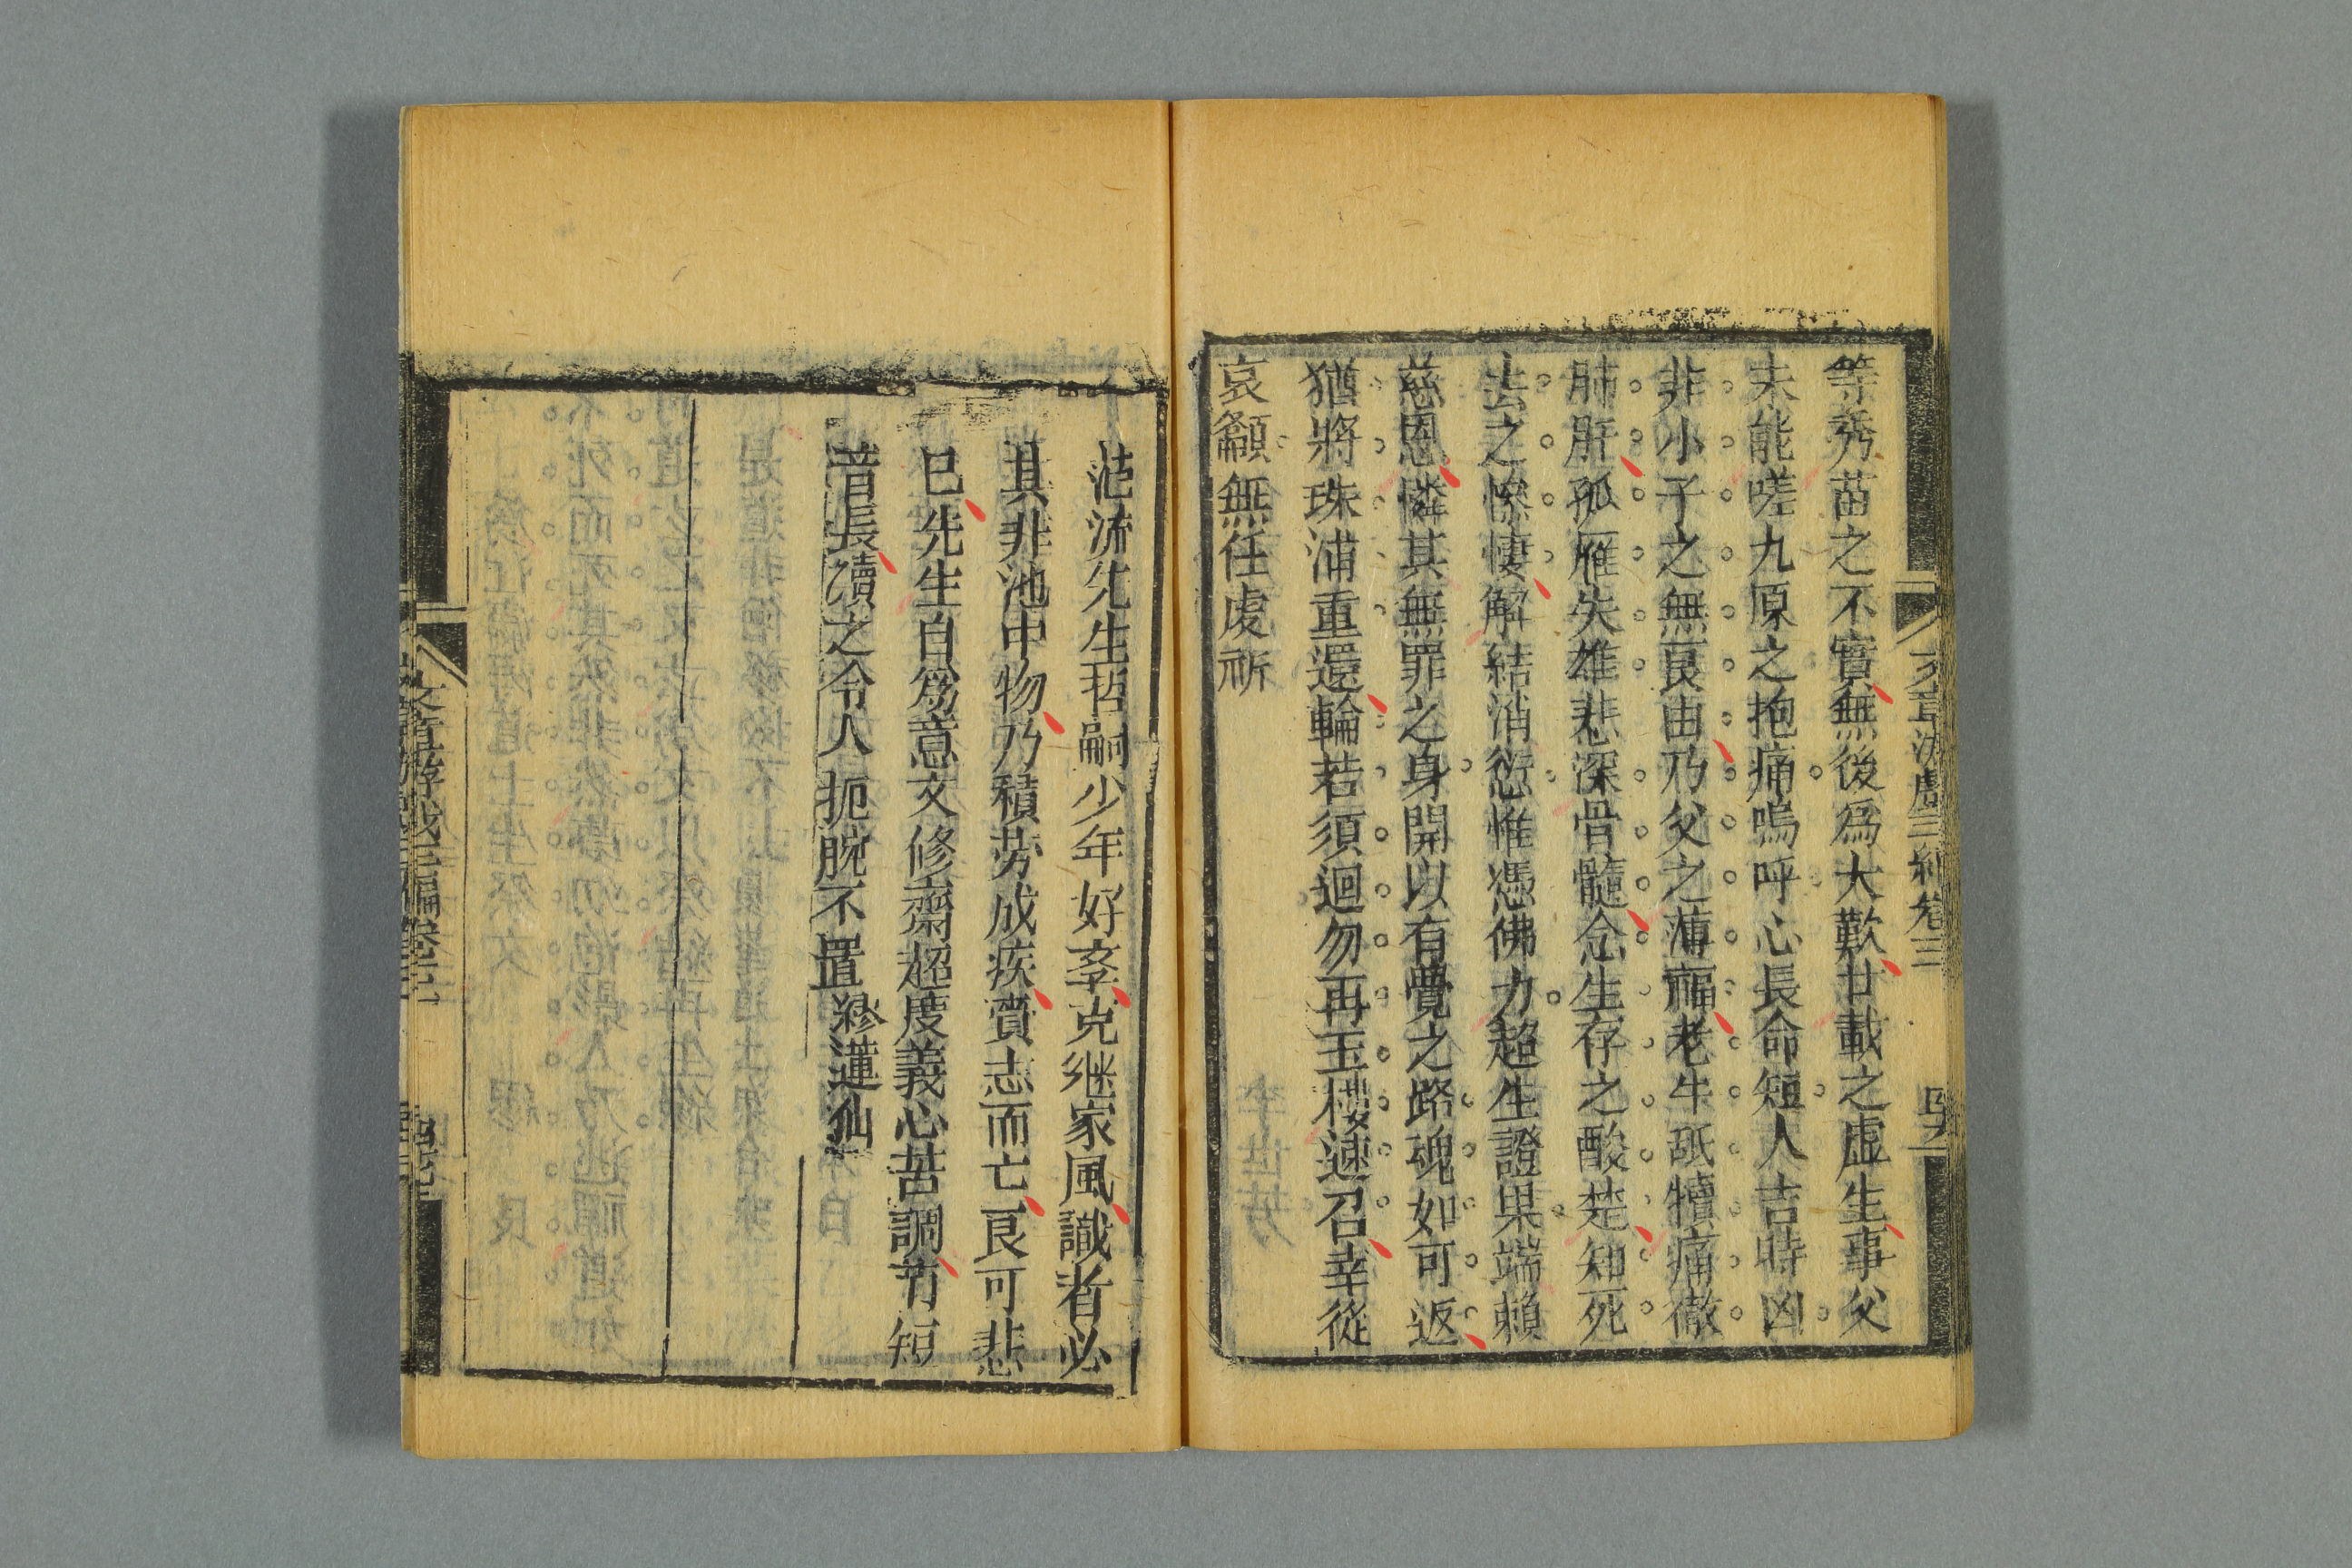 等秀苗之不實無後爲大歎廿載之虛生事父
未能嗟九原之抱痛嗚呼心長命短人吉時凶
非小子之無良由乃父之薄福老牛舐犢痛徹
肺肝孤雁失雄悲深骨髓念生存之酸楚知死
去之慘悽解結消愆惟憑佛力超生證果端賴
慈恩憐其無罪之身開以有覺之路魂如可返
猶將珠浦重還輪若須迴勿再玉樓速召幸從
哀籲無任虔祈
范流先生哲嗣少年好李克继家風識者必
其非池中物乃積劳成疾賫志而亡良可悲
已先生自為意文修齋超度義心苦調莭短
音長讀之令人扼腕不置 繆蓮仙
文章游戲三編卷三
文章游戲三編卷三